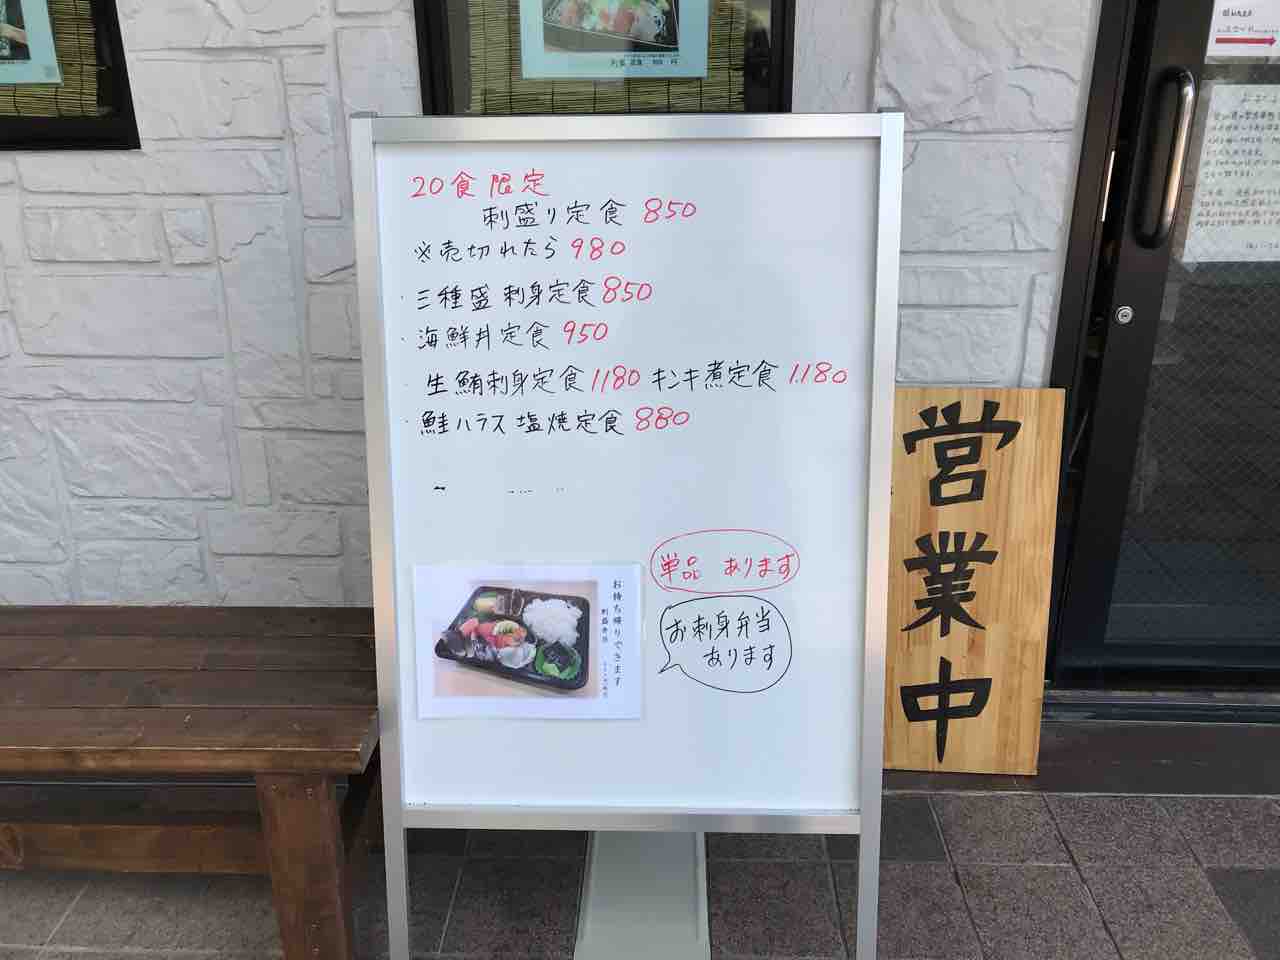 20食 限定
刺盛り定食 850
※売切れたら 980
・三種盛 刺身定食 850
・海鮮丼定食 950
・生鮪刺身定食 1180 キンキ煮定食 1.180
・鮭ハラス塩焼定食 880
単品 あります
お刺身弁当
あります
お持ち帰りできます
刺盛弁当
営業中